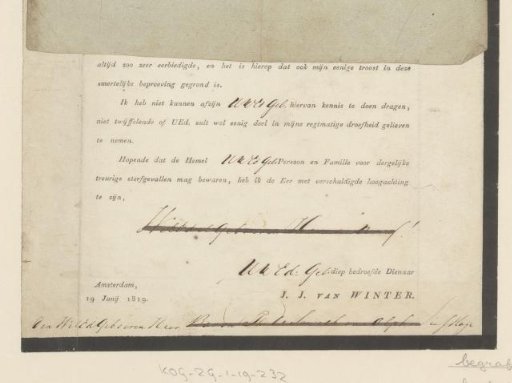 altijd zoo zeer eerbiedigde, en het is hierop dat ook mijn eenige troost in deze
smertelijke beproeving gegrond is.
Ik heb niet kunnen afzijn UWEd Geb. hiervan kennis te doen dragen,
niet twijffelende of UEd. zult wel eenig deel in mijne regtmatige droefheid gelieven
te nemen.
Hopende dat de Hemel UWEdGeb Persoon en Familie voor dergelijke
treurige sterfgevallen mag bewaren, heb ik de Eer met verschuldigde hoogachting
te zijn,
UWEd: Geb: diep bedroefde Dienaar
Amsterdam,
19 Junij 1819.
J. J. VAN WINTER.
Den WelEdGeboren Heer
KOG-ZG-1-19-232
begraf